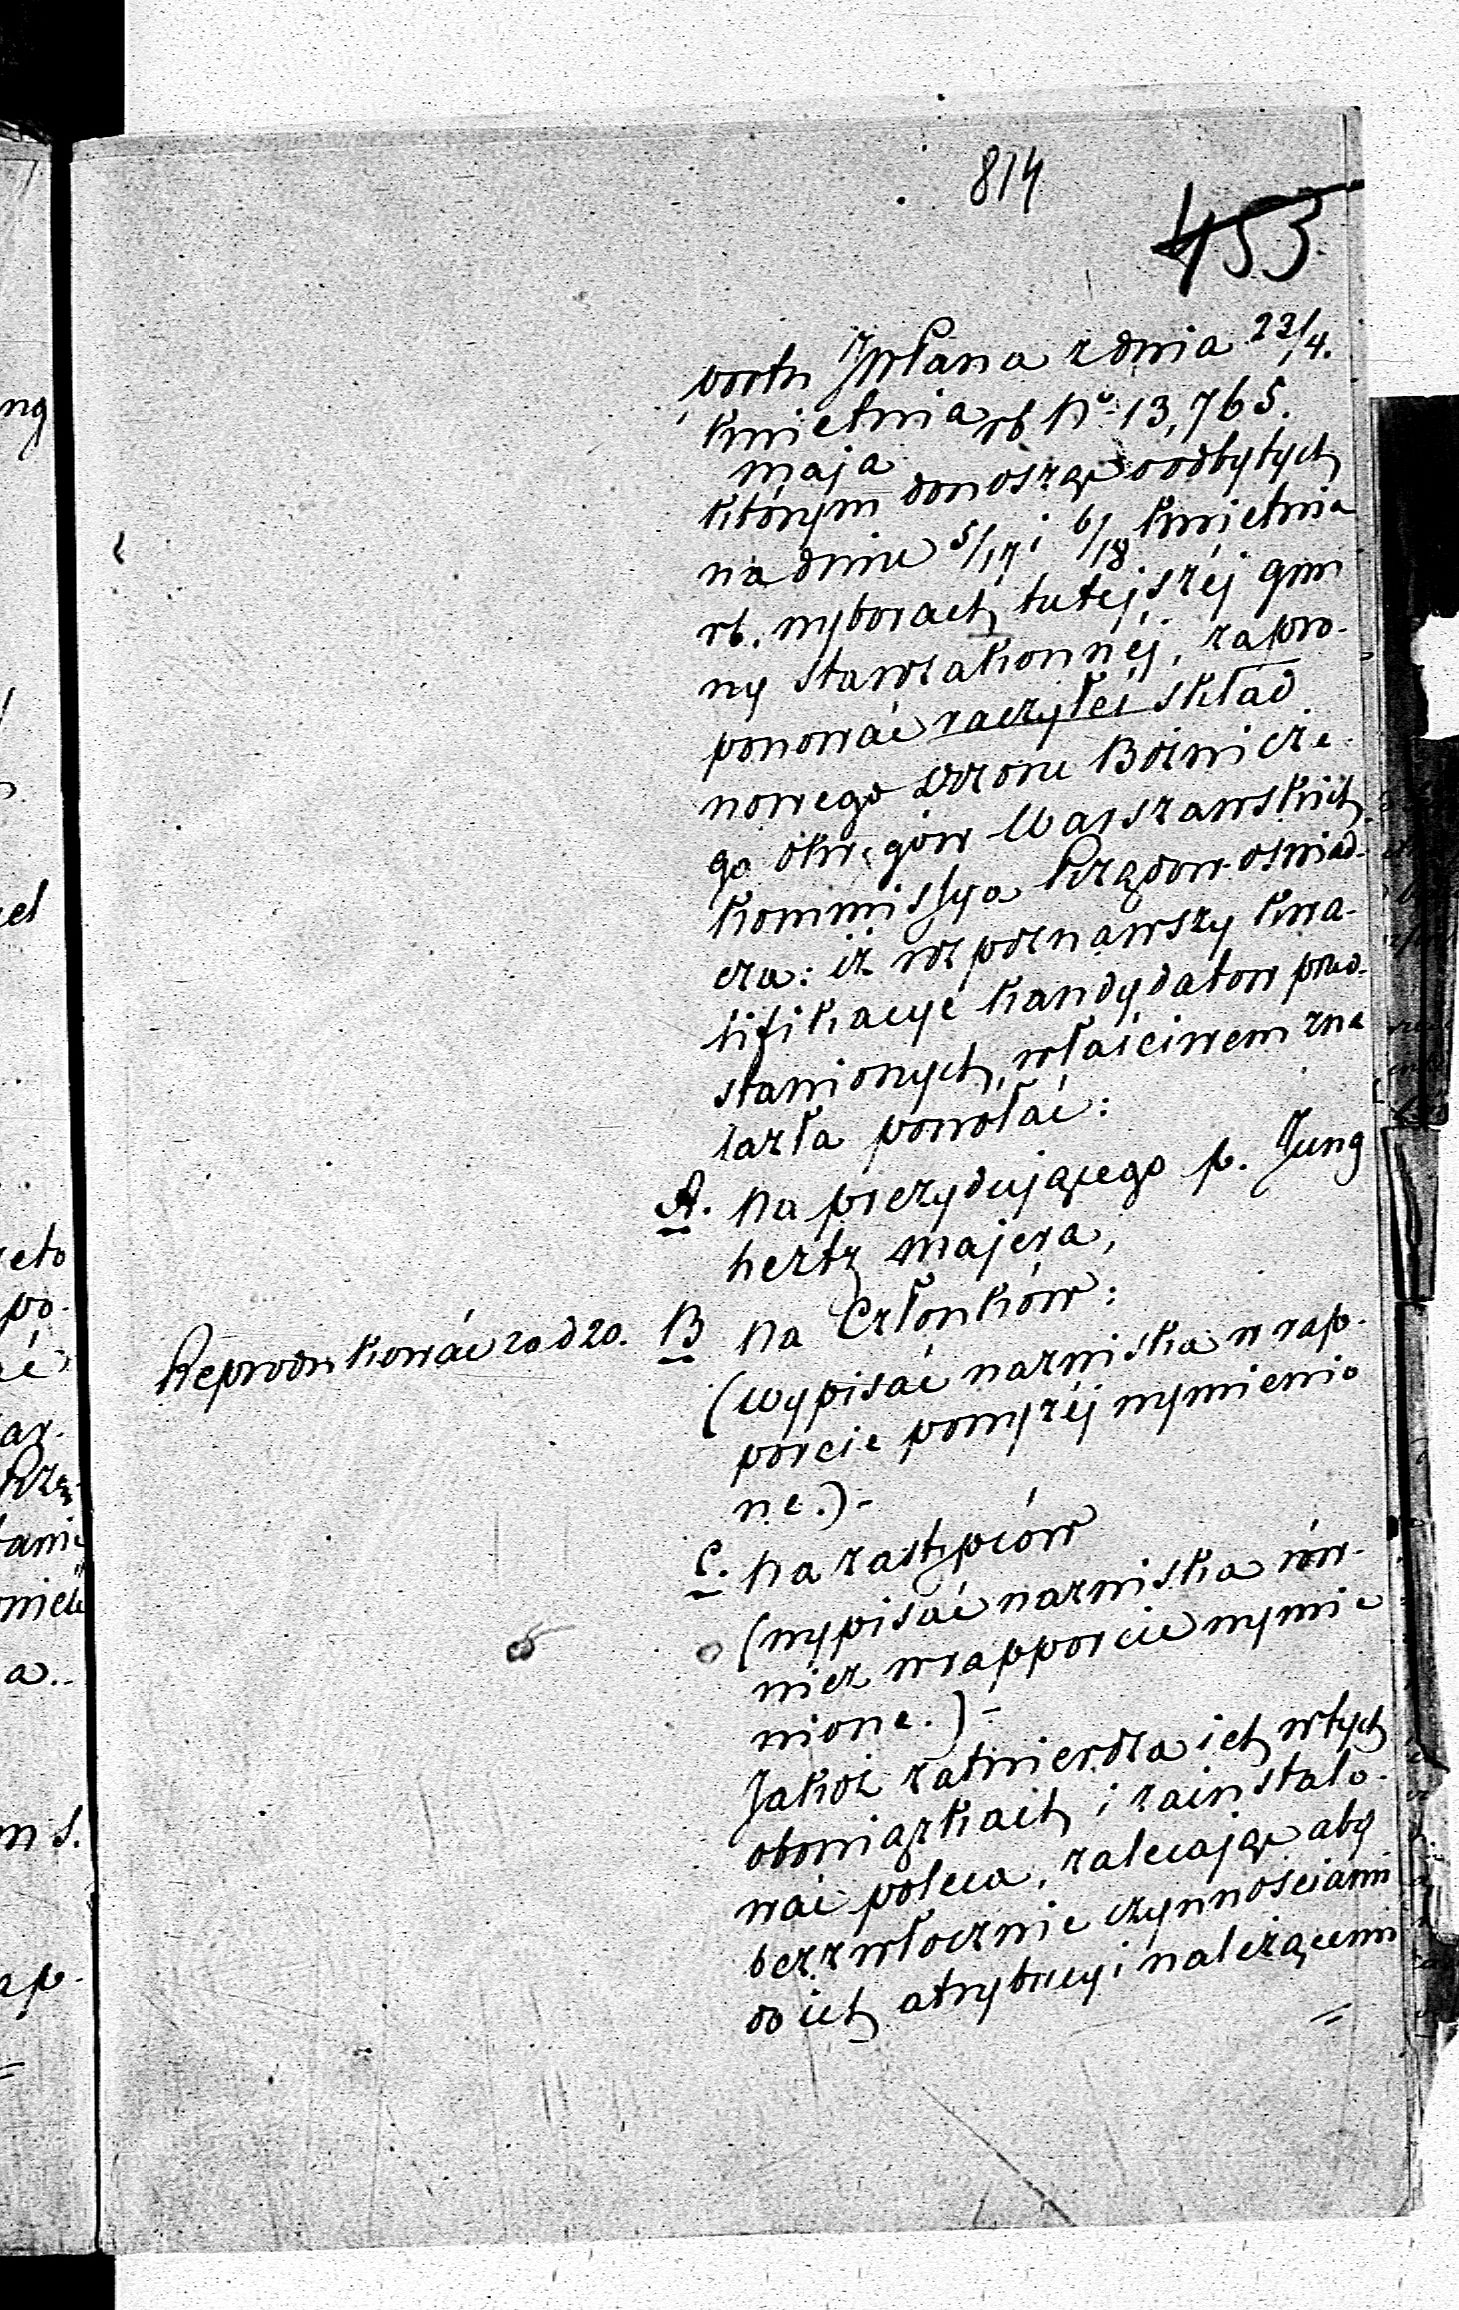 814
453
portu JWPana z dnia 22/4.
kwietnia rb No 13,765.
maja
którym donosząc o odbytych
na dniu 5/17 i 6/18 kwietnia
rb. wyborach tutejszéj gmi
ny starozakonnéj, zapro-
ponować raczyłeś skład
nowego Dozoru Bóżnicze
go okręgów Warszawskich
Kommissya Rządow. oświad-
cza: iż rozpoznawszy kwa-
lifikacye kandydatów przed-
stawionych, właściwem zna
lazła powołać:
A. Na prezydującego p. Jung
hertz Majera,
B Na Członków:
Reprodukować 20 d 20.
(Wypisać nazwiska w rap-
porcie powyżéj wymienio
ne.)-
C. Na zastępców
(wypisać nazwiska rów-
nież w rapporcie wymie
nione.)-
Jakoż zatwierdza ich w tych
obowiązkach i zainstalo-
wać poleca, zalecając aby
bezzwłocznie czynnościami
do ich atrybucyi należącemi